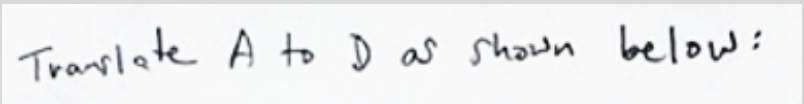 Translate A to D as shown below: